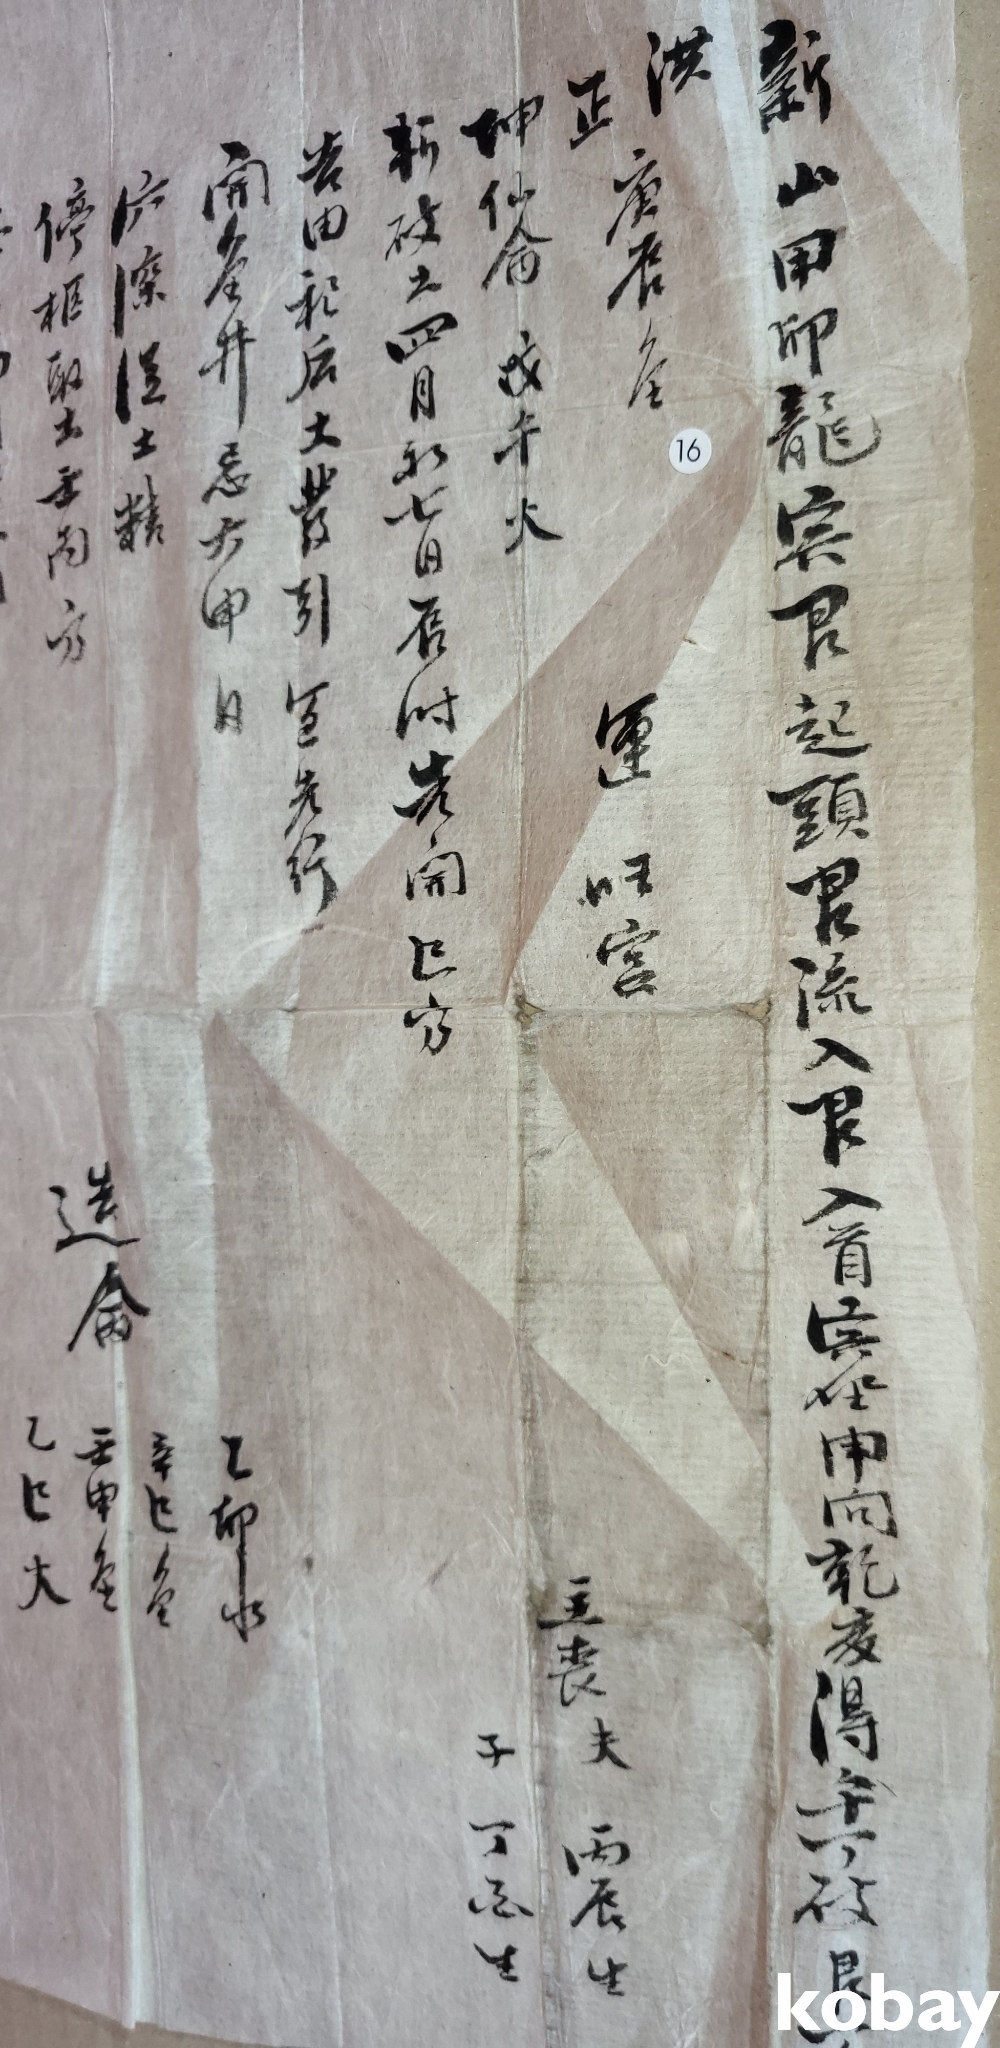 新山甲卯龍寅艮起頭艮流入艮入首寅坐申向乾亥得午丁破艮
洪
正 庚辰金 運 旺宮
主喪 夫 丙辰生
坤仙命 戊午火
子 丁酉生
斬破土四月初七日辰時先開巳方
告由祀后土發引宜先行
開金井忌六甲日
乙卯水
辛巳金
穴深淺土精
造命
壬申金
停柩取土壬丙方
乙巳火
16
kobay